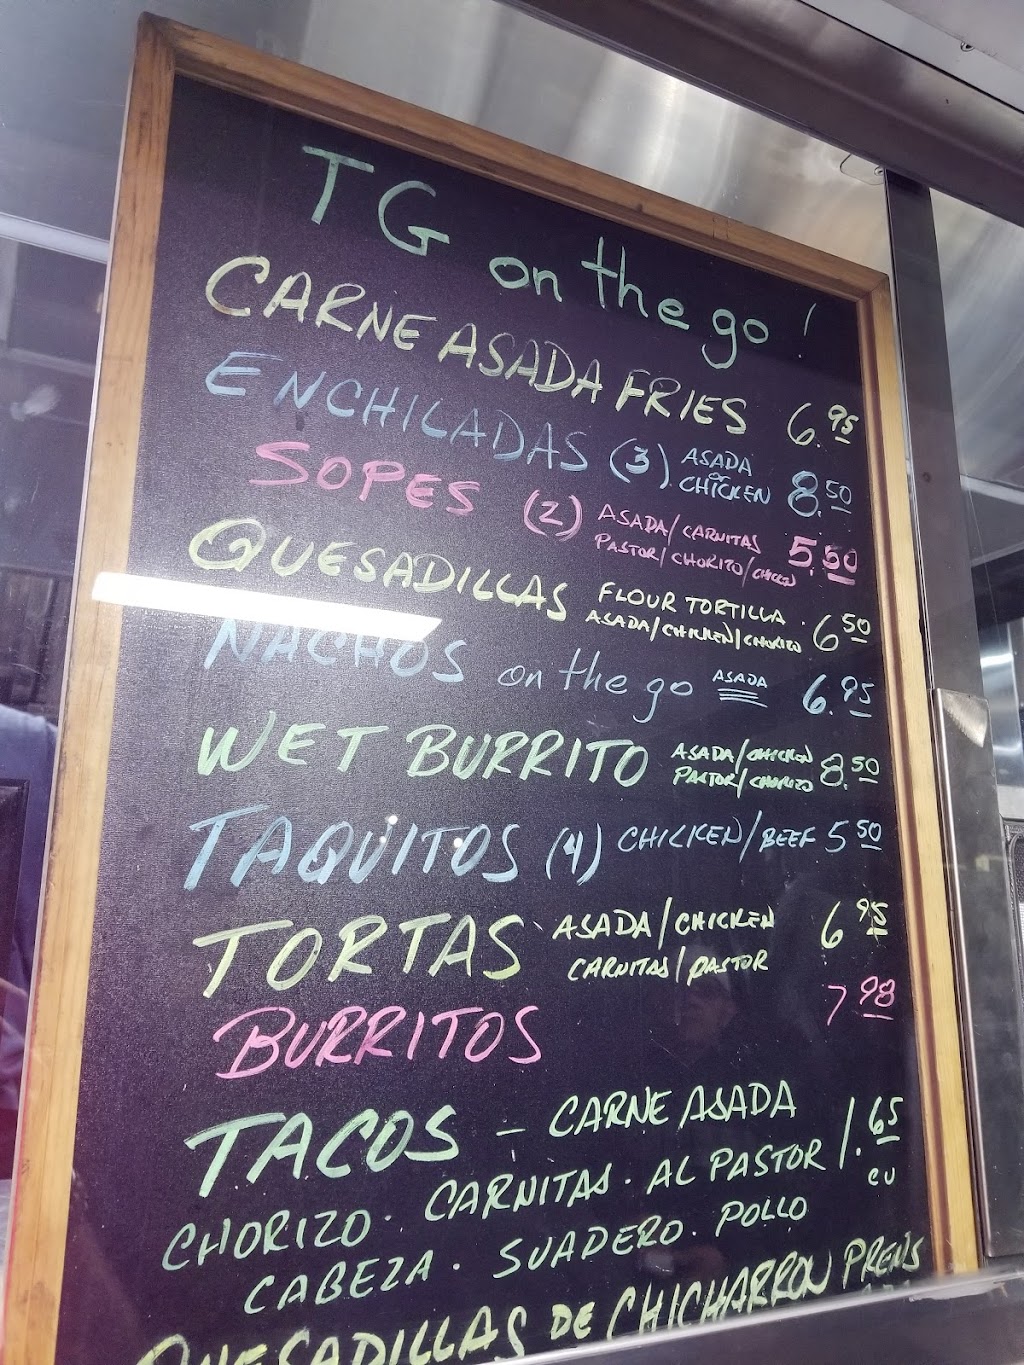 TG on the go!
CARNE ASADA FRIES 6.95
ENCHILADAS (3) ASADA or CHICKEN 8.50
SOPES (2) ASADA/CARNITAS 5.50
PASTOR/CHORIZO/CHICKEN
QUESADILLAS FLOUR TORTILLA. 6.50
ASADA/CHICKEN/CHORIZO
NACHOS on the go ASADA 6.95
WET BURRITO ASADA/CHICKEN 8.50
PASTOR/CHORIZO
TAQUITOS (4) CHICKEN/BEEF 5.50
TORTAS ASADA/CHICKEN 6.95
CARNITAS/PASTOR
BURRITOS 7.98
TACOS - CARNE ASADA 1.65 CU
CHORIZO. CARNITAS. AL PASTOR
CABEZA. SUADERO. POLLO
QUESADILLAS DE CHICHARRON PRENS